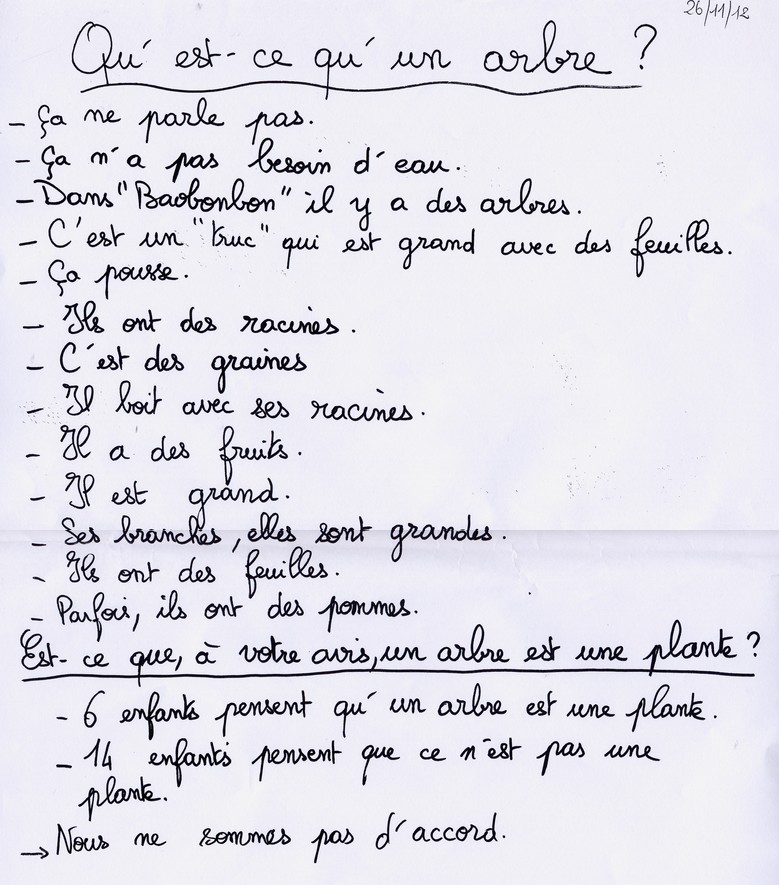 26/11/12
Qu'est-ce qu'un arbre ?
- Ça ne parle pas.
- Ça n'a pas besoin d'eau.
- Dans "Baobonbon" il y a des arbres.
- C'est un "truc" qui est grand avec des feuilles.
- Ça pousse.
- Ils ont des racines.
- C'est des graines
- Il boit avec ses racines.
- Il a des fruits.
- Il est grand.
- Ses branches, elles sont grandes.
- Ils ont des feuilles.
- Parfois, ils ont des pommes.
Est-ce que, à votre avis, un arbre est une plante ?
- 6 enfants pensent qu'un arbre est une plante.
- 14 enfants pensent que ce n'est pas une
plante.
→ Nous ne sommes pas d'accord.